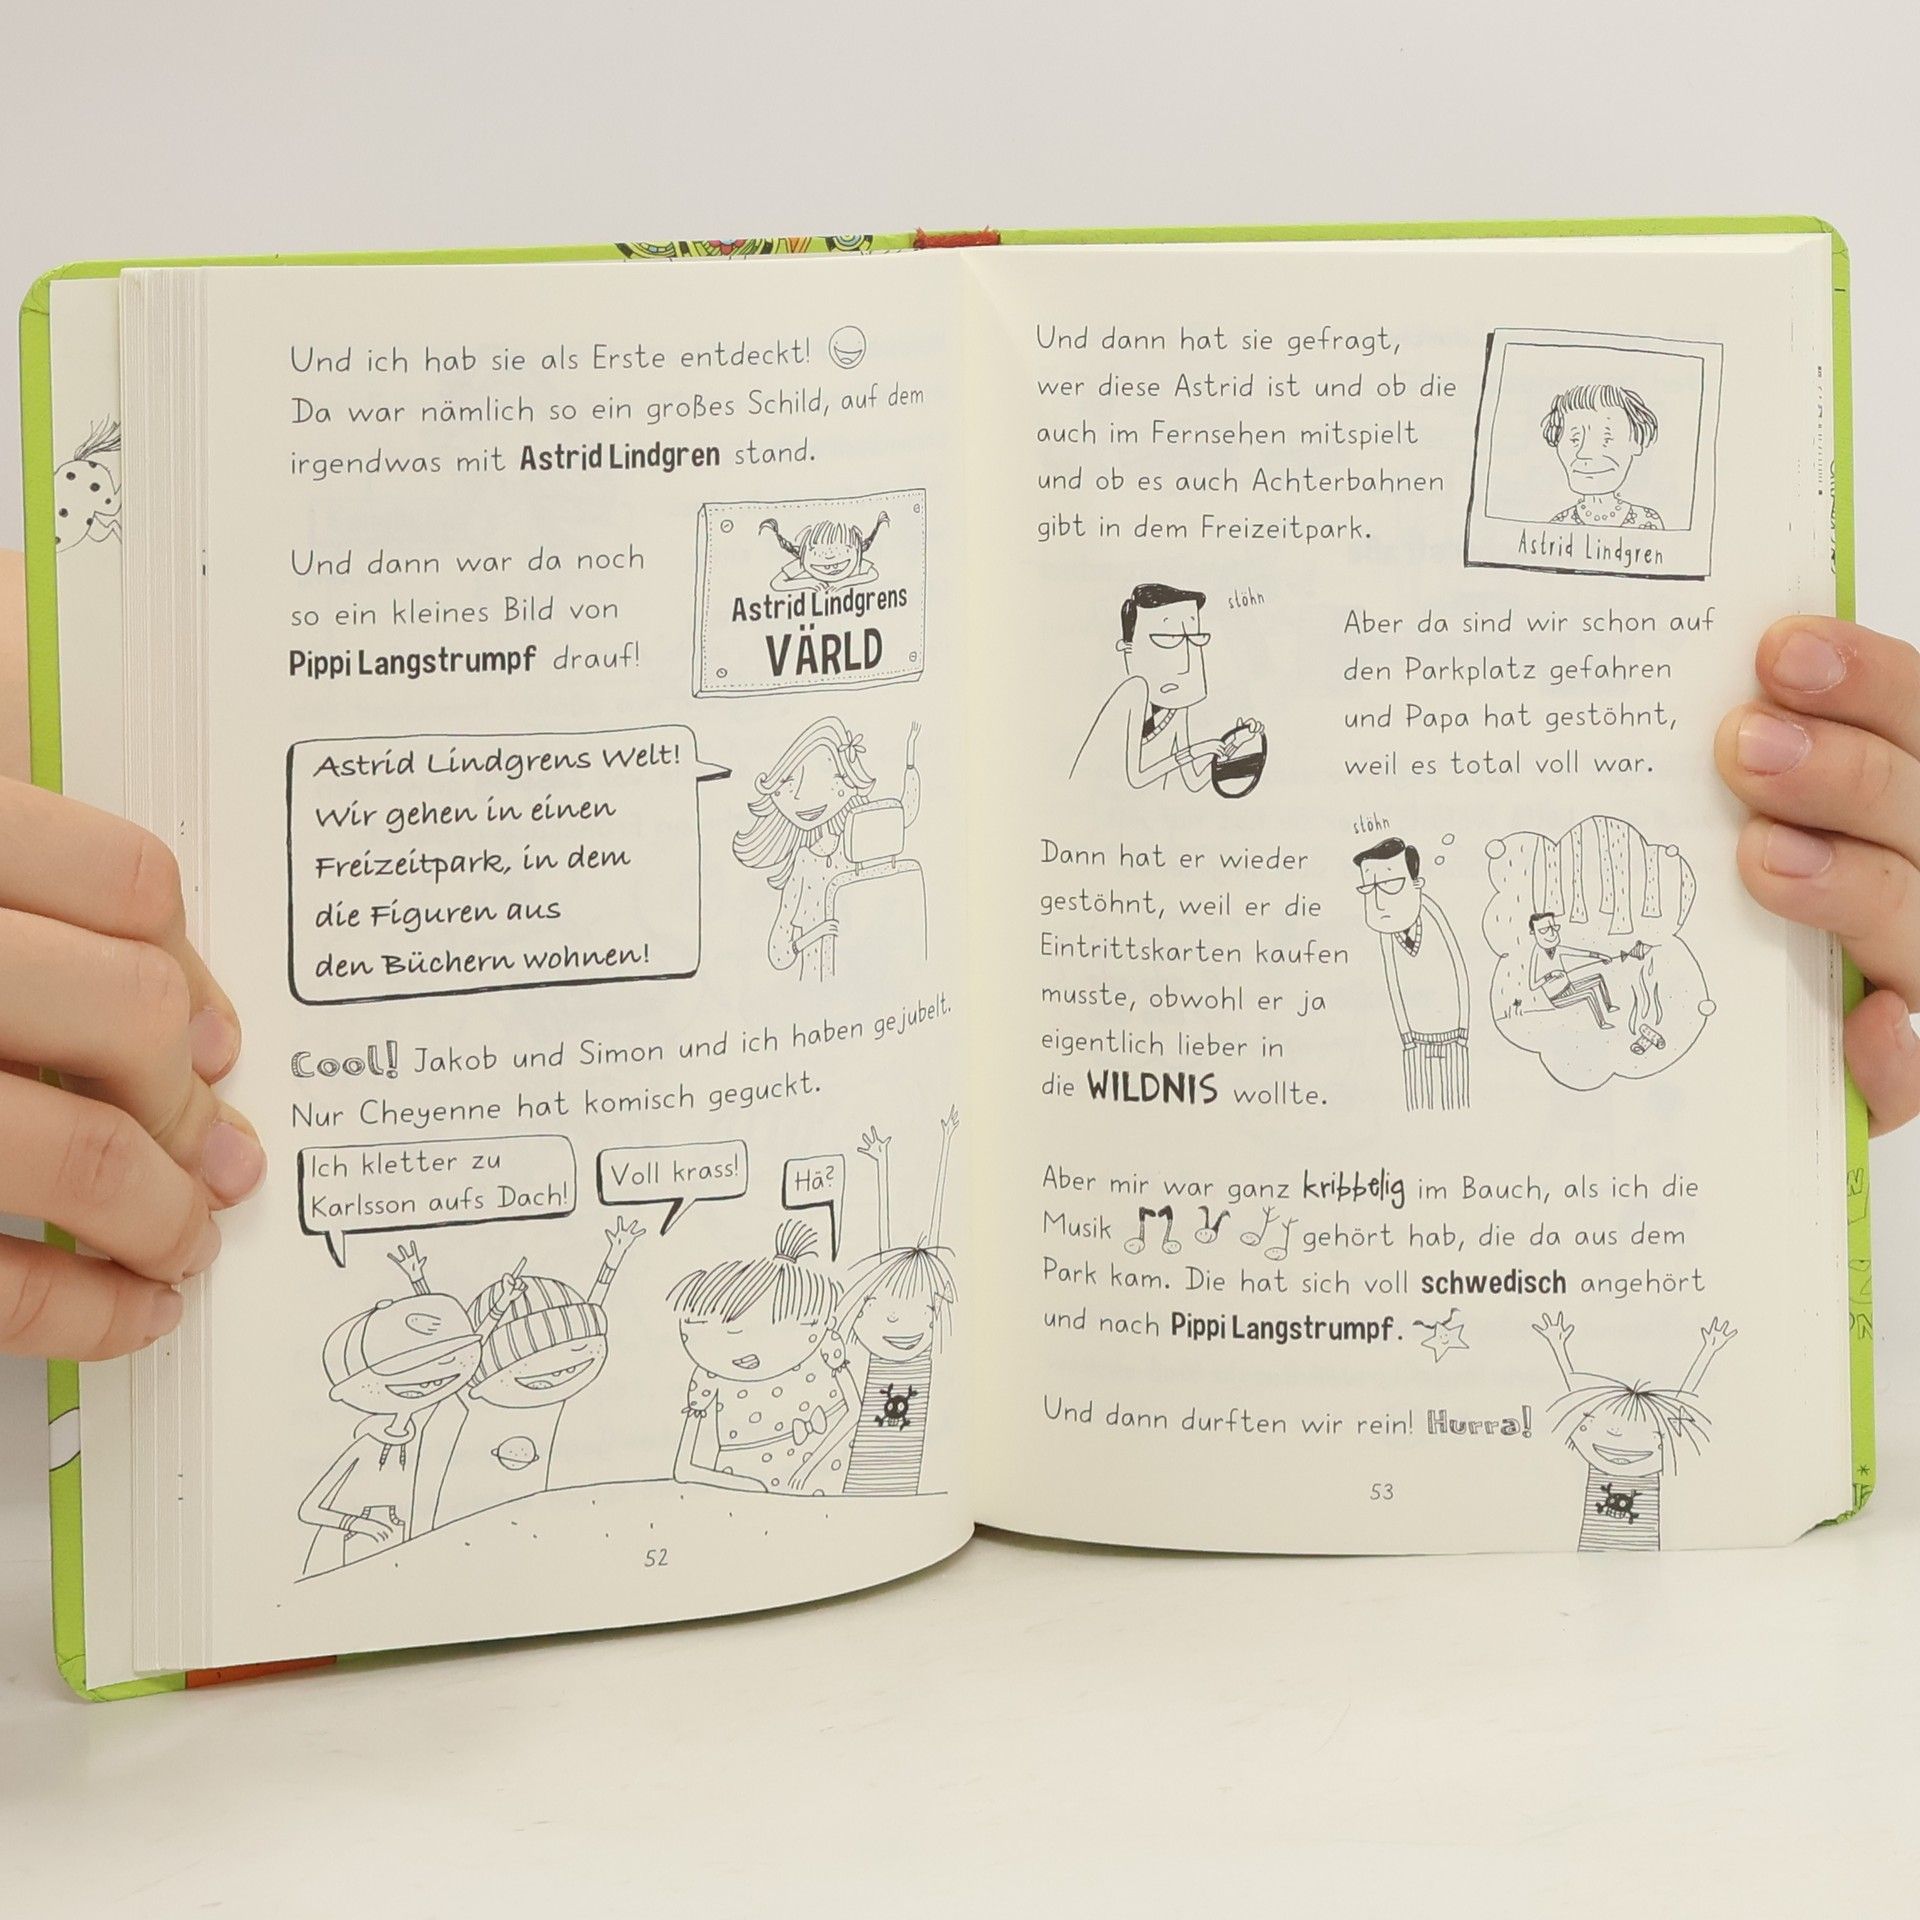 Und ich hab sie als Erste entdeckt!
Da war nämlich so ein großes Schild, auf dem
irgendwas mit Astrid Lindgren stand.
Und dann war da noch
so ein kleines Bild von
Pippi Langstrumpf drauf!
Astrid Lindgrens
VÄRLD
Astrid Lindgrens Welt!
Wir gehen in einen
Freizeitpark, in dem
die Figuren aus
den Büchern wohnen!
Cool! Jakob und Simon und ich haben gejubelt.
Nur Cheyenne hat komisch geguckt.
Ich kletter zu
Karlsson aufs Dach!
Voll krass!
Hä?
52
Und dann hat sie gefragt,
wer diese Astrid ist und ob die
auch im Fernsehen mitspielt
und ob es auch Achterbahnen
gibt in dem Freizeitpark.
Astrid Lindgren
stöhn
Aber da sind wir schon auf
den Parkplatz gefahren
und Papa hat gestöhnt,
weil es total voll war.
stöhn
Dann hat er wieder
gestöhnt, weil er die
Eintrittskarten kaufen
musste, obwohl er ja
eigentlich lieber in
die WILDNIS wollte.
Aber mir war ganz kribbelig im Bauch, als ich die
Musik gehört hab, die da aus dem
Park kam. Die hat sich voll schwedisch angehört
und nach Pippi Langstrumpf.
Und dann durften wir rein! Hurra!
53